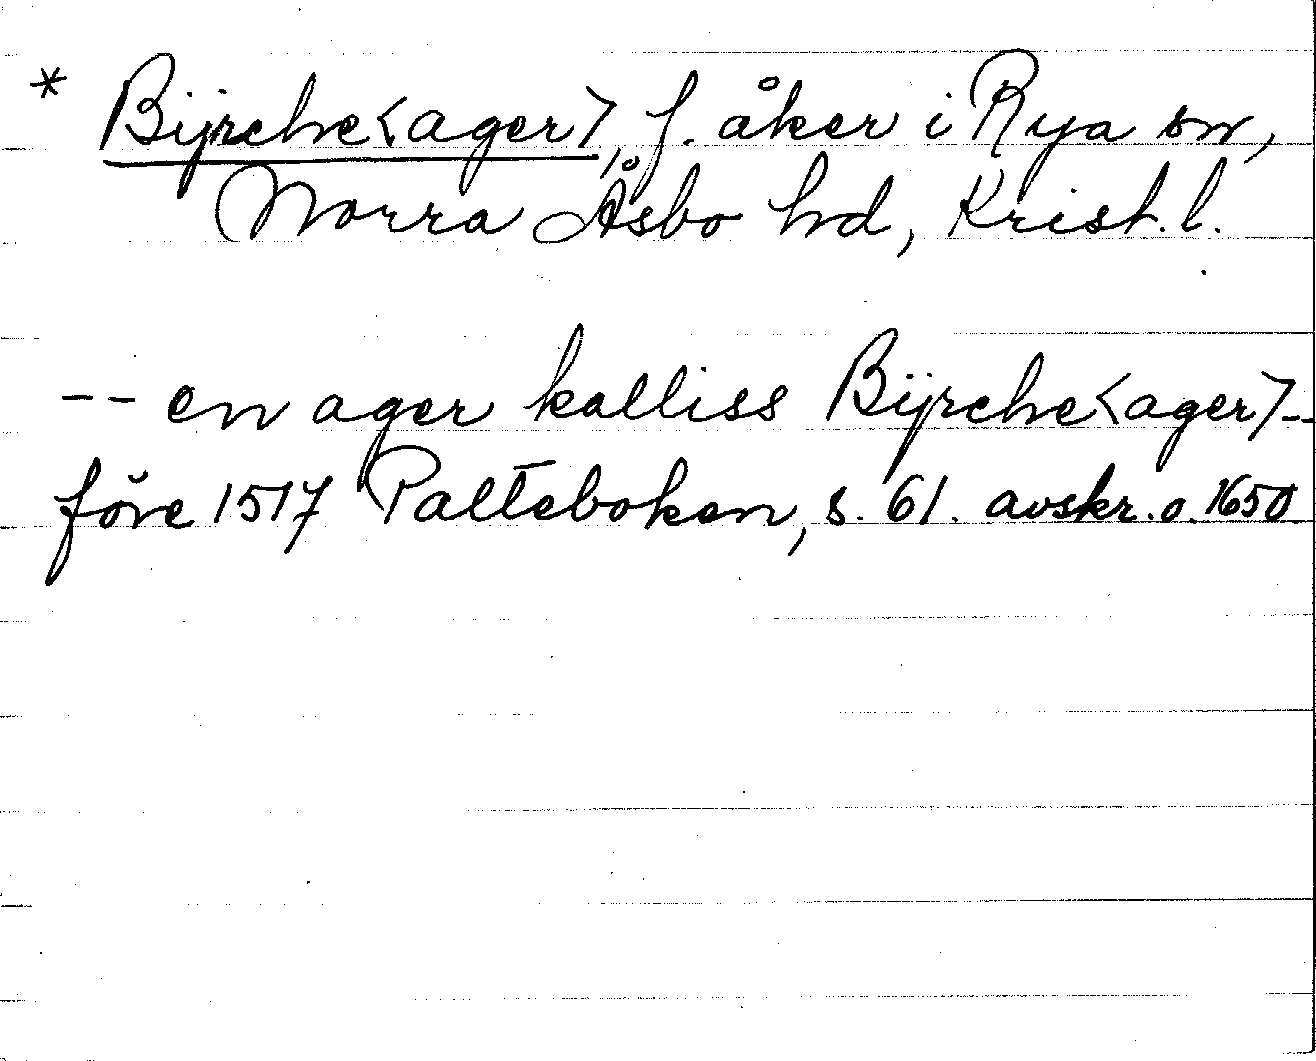 * Bijrche<ager>, f. åker i Rya sn,
Norra Åsbo hd, Krist. l.
-- en ager kalliss Bijrche<ager>--
före 1517 Palteboken, s. 61. avskr. o. 1650